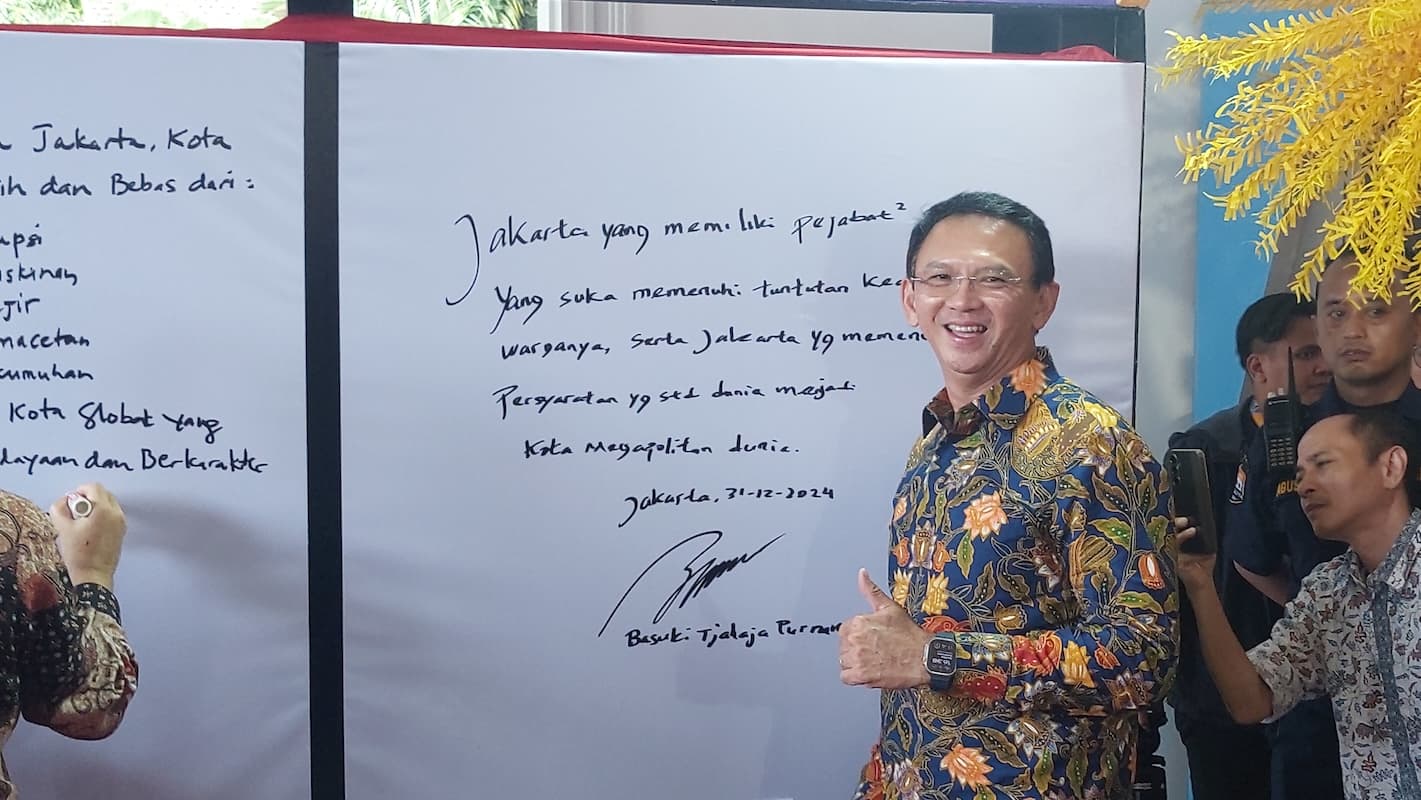 Jakarta, Kota
ih dan Bebas dari :
upsi
iskinan
jir
macetan
kumuhan
Kota Global yang
dayaan dan Berkarakter
Jakarta yang memiliki pejabat²
Yang suka memenuhi tuntutan
warganya, serta Jakarta yg
Persyaratan yg std dunia menjadi
Kota Megapolitan dunia.
Jakarta, 31-12-2024
Basuki Tjahaja Purnam
AGUS